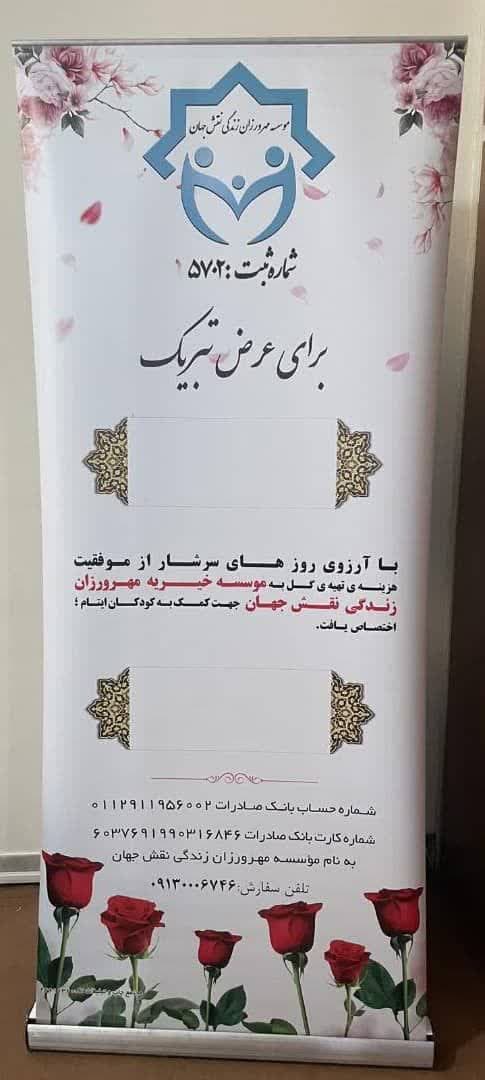 موسسه مهرورزان زندگی نقش جهان
شماره ثبت :۵۷۰۲
برای عرض تبریک
با آرزوی روز های سرشار از موفقیت
هزینه ی تهیه ی گل به موسسه خیریه مهرورزان
زندگی نقش جهان جهت کمک به کودکان ایتام ؛
اختصاص یافت.
شماره حساب بانک صادرات ۰۱۱۲۹۱۱۹۵۶۰۰۲
شماره کارت بانک صادرات ۶۰۳۷۶۹۱۹۹۰۳۱۶۸۴۶
به نام مؤسسه مهرورزان زندگی نقش جهان
تلفن سفارش:۰۹۱۳۰۰۰۶۷۴۶